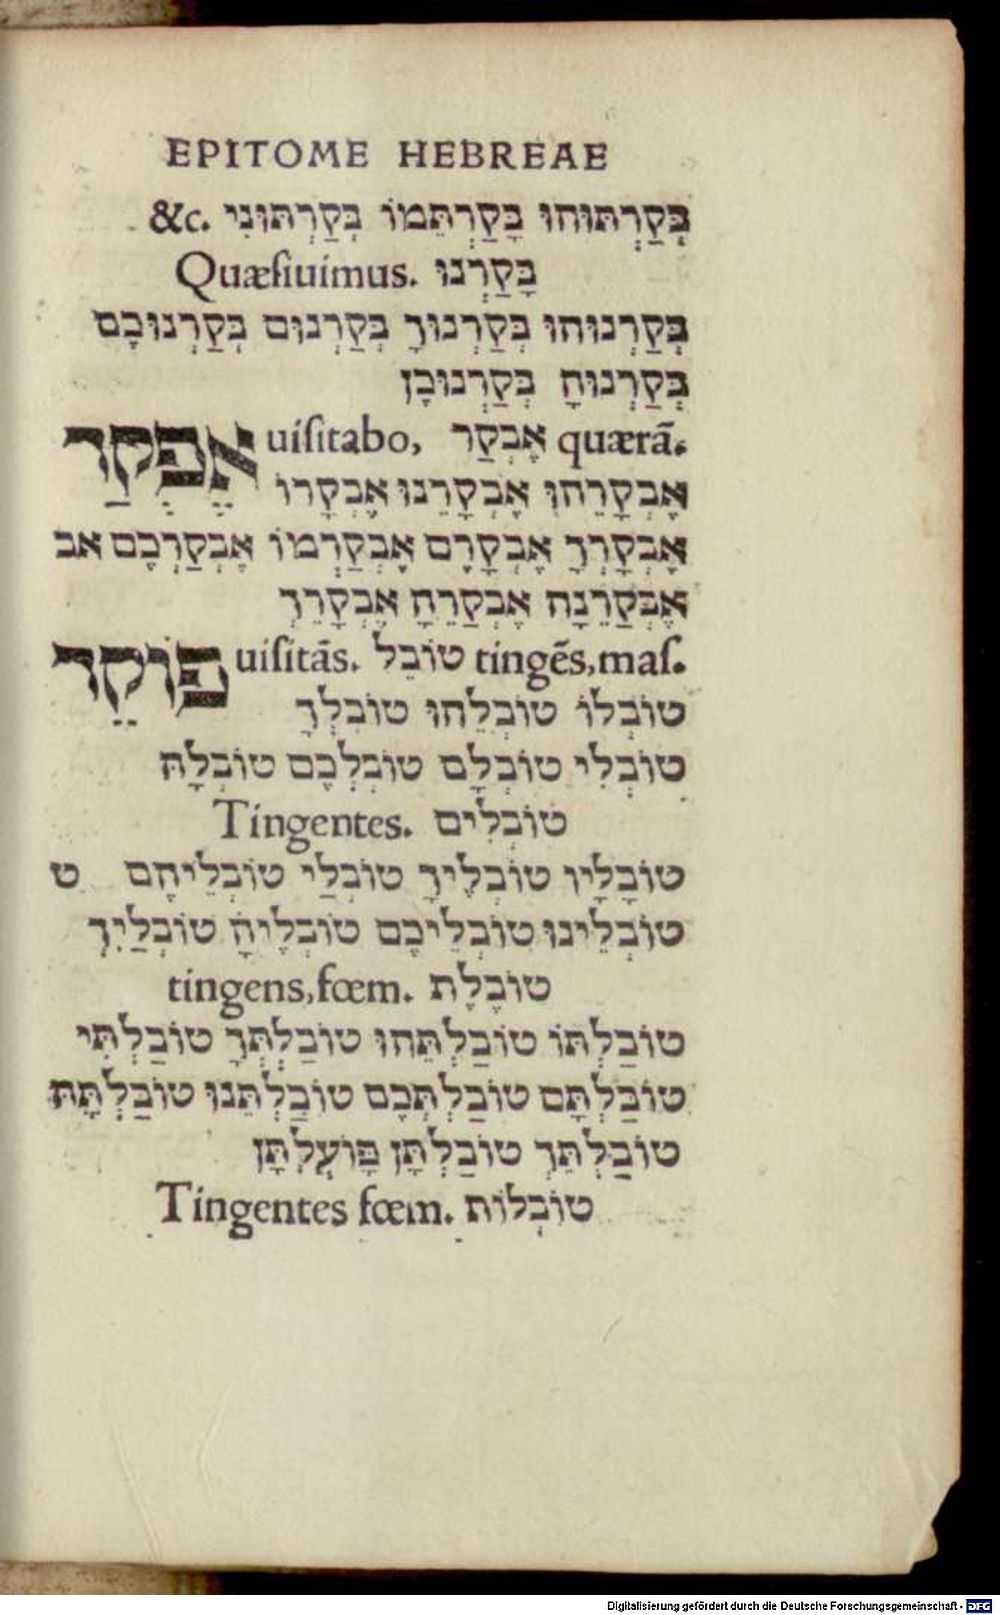 EPITOME HEBREAE
בְּקַרְתּוּהוּ בְּקַרְתֵּמוֹ בְּקַרְתּוּנִי &c.
Quæsiuimus. בָּקַרְנוּ
בְּקַרְנוּהוּ בְּקַרְנוּךָ בְּקַרְנוּם בְּקַרְנוּכֶם
בְּקַרְנוּהָ בְּקַרְנוּכֶן
אֶפְקַד uisitabo, אֶבְקַר quærā.
אֶבְקָרֵהוּ אֶבְקָרֵנוּ אֶבְקָרוֹ
אֶבְקָרְךָ אֶבְקָרֶם אֶבְקַרְמוֹ אֶבְקַרְכֶם אב
אֶבְקַרֵנָה אֶבְקַרֵהָ אֶבְקָרֵךְ
פּוֹקֵד uisitās. טוֹבֵל tingēs, mas.
טוֹבְלוֹ טוֹבְלֵהוּ טוֹבִלְךָ
טוֹבְלִי טוֹבְלָם טוֹבְלְכֶם טוֹבְלָהּ
Tingentes. טוֹבְלִים
טוֹבְלָיו טוֹבְלֶיךָ טוֹבְלַי טוֹבְלֵיהֶם ט
טוֹבְלֵינוּ טוֹבְלֵיכֶם טוֹבְלֶיהָ טוֹבְלַיִךְ
tingens, fœm. טוֹבֶלֶת
טוֹבַלְתּוֹ טוֹבַלְתֵּהוּ טוֹבַלְתְּךָ טוֹבַלְתִּי
טוֹבַלְתָּם טוֹבַלְתְּכֶם טוֹבַלְתֵּנוּ טוֹבַלְתָּהּ
טוֹבַלְתֵּךְ טוֹבַלְתָּן פּוֹעַלְתָּן
Tingentes fœm. טוֹבְלוֹת
Digitalisierung gefördert durch die Deutsche Forschungsgemeinschaft - DFG